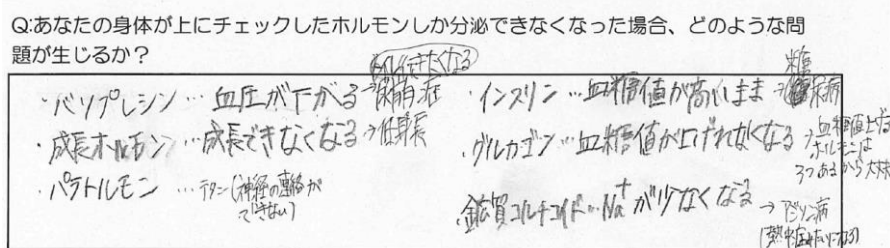 Q:あなたの身体が上にチェックしたホルモンしか分泌できなくなった場合、どのような問
題が生じるか？
・バソプレシン…血圧が下がる→尿崩症
・成長ホルモン…成長できなくなる→低身長
・パラトルモン…テタニー(神経の連絡が
できない)
・インスリン…血糖値が高いまま→糖尿病
・グルカゴン…血糖値が上げれなくなる→血糖値上げる
ホルモンは
3つあるから大丈夫
・鉱質コルチコイド…Na⁺が少なくなる→アジソン病